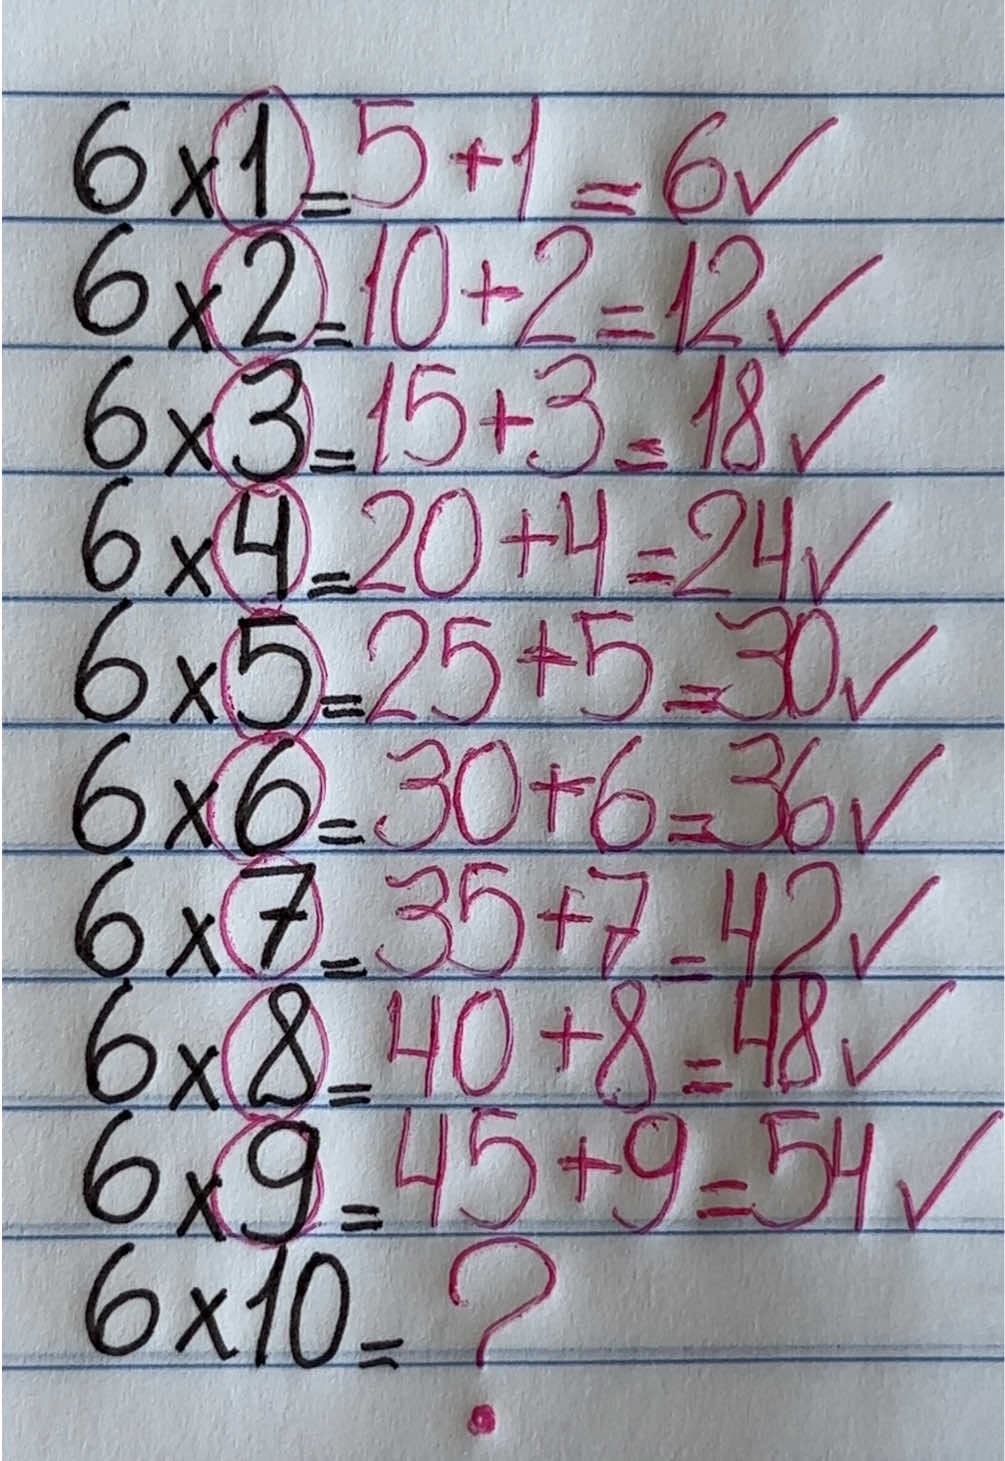 6x1=5+1=6✓
6x2=10+2=12✓
6x3=15+3=18✓
6x4=20+4=24✓
6x5=25+5=30✓
6x6=30+6=36✓
6x7=35+7=42✓
6x8=40+8=48✓
6x9=45+9=54✓
6x10=?